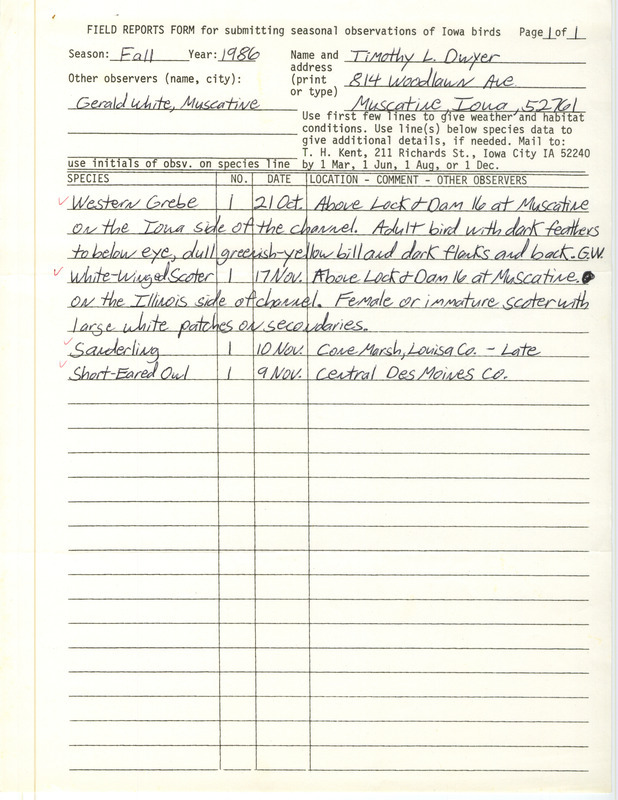 FIELD REPORTS FORM for submitting seasonal observations of Iowa birds Page 1 of 1
Season: Fall Year: 1986 Name and Timothy L. Dwyer
address
Other observers (name, city): (print 814 Woodlawn Ave
or type)
Gerald White, Muscatine Muscatine, Iowa, 52761
Use first few lines to give weather and habitat
conditions. Use line(s) below species data to
give additional details, if needed. Mail to:
T. H. Kent, 211 Richards St., Iowa City IA 52240
use initials of obsv. on species line by 1 Mar, 1 Jun, 1 Aug, or 1 Dec.
SPECIES NO. DATE LOCATION - COMMENT - OTHER OBSERVERS
Western Grebe 1 21 Oct. Above Lock & Dam 16 at Muscatine
on the Iowa side of the channel. Adult bird with dark feathers
to below eye, dull greenish-yellow bill and dark flanks and back. G.W.
White-Winged Scoter 1 17 Nov. Above Lock & Dam 16 at Muscatine.
on the Illinois side of channel. Female or immature scoter with
large white patches on secondaries.
Sanderling 1 10 Nov. Cone Marsh, Louisa Co. - Late
Short-Eared Owl 1 9 Nov. Central Des Moines Co.